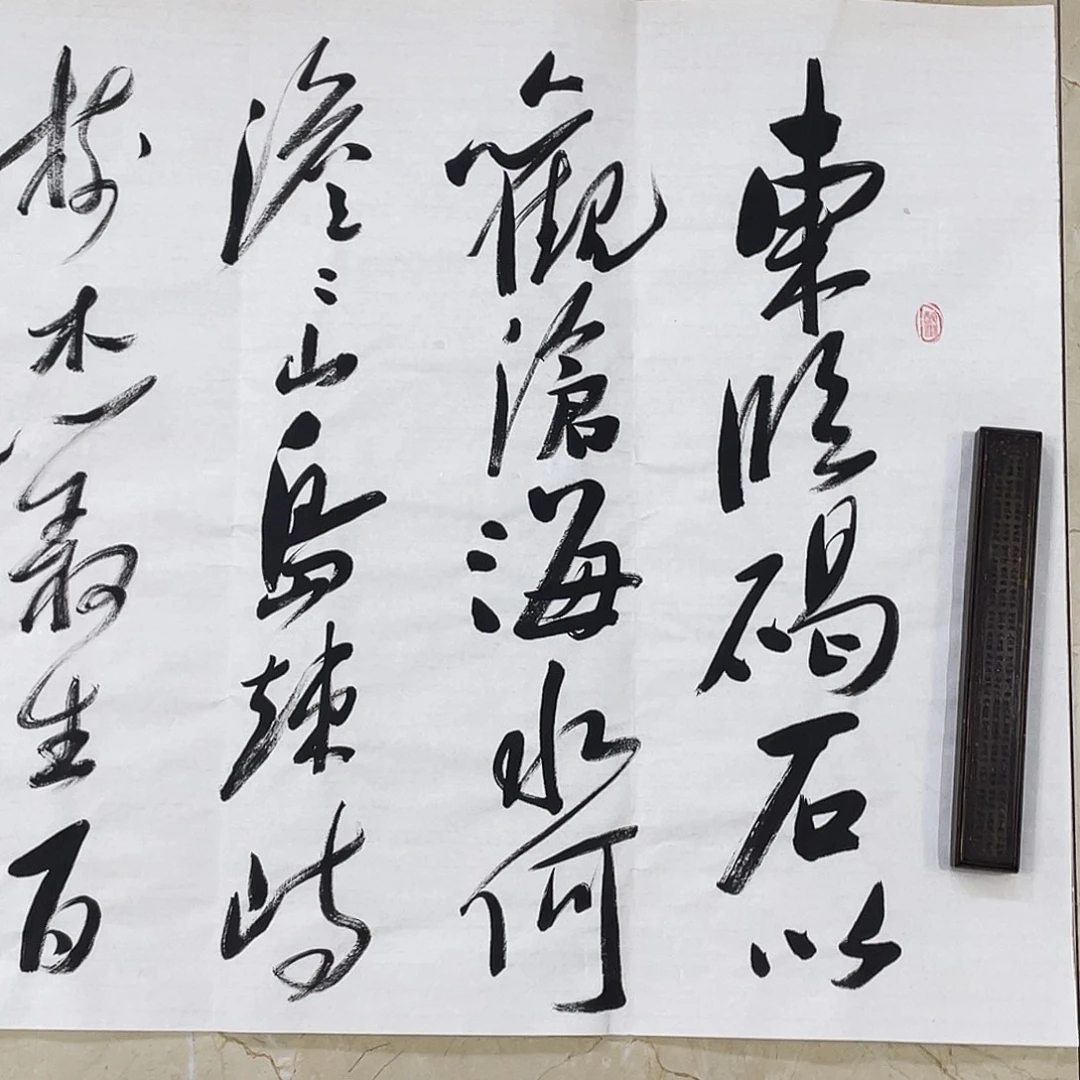 東臨碣石以
觀滄海水何
澹々山島竦峙
樹木叢生百